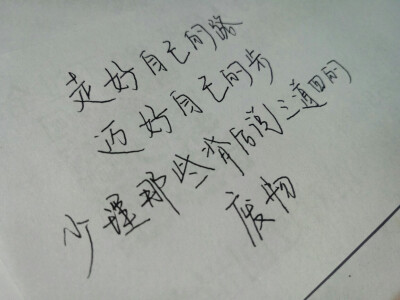 走好自己的路
迈好自己的步
少理那些背后说三道四的
废物